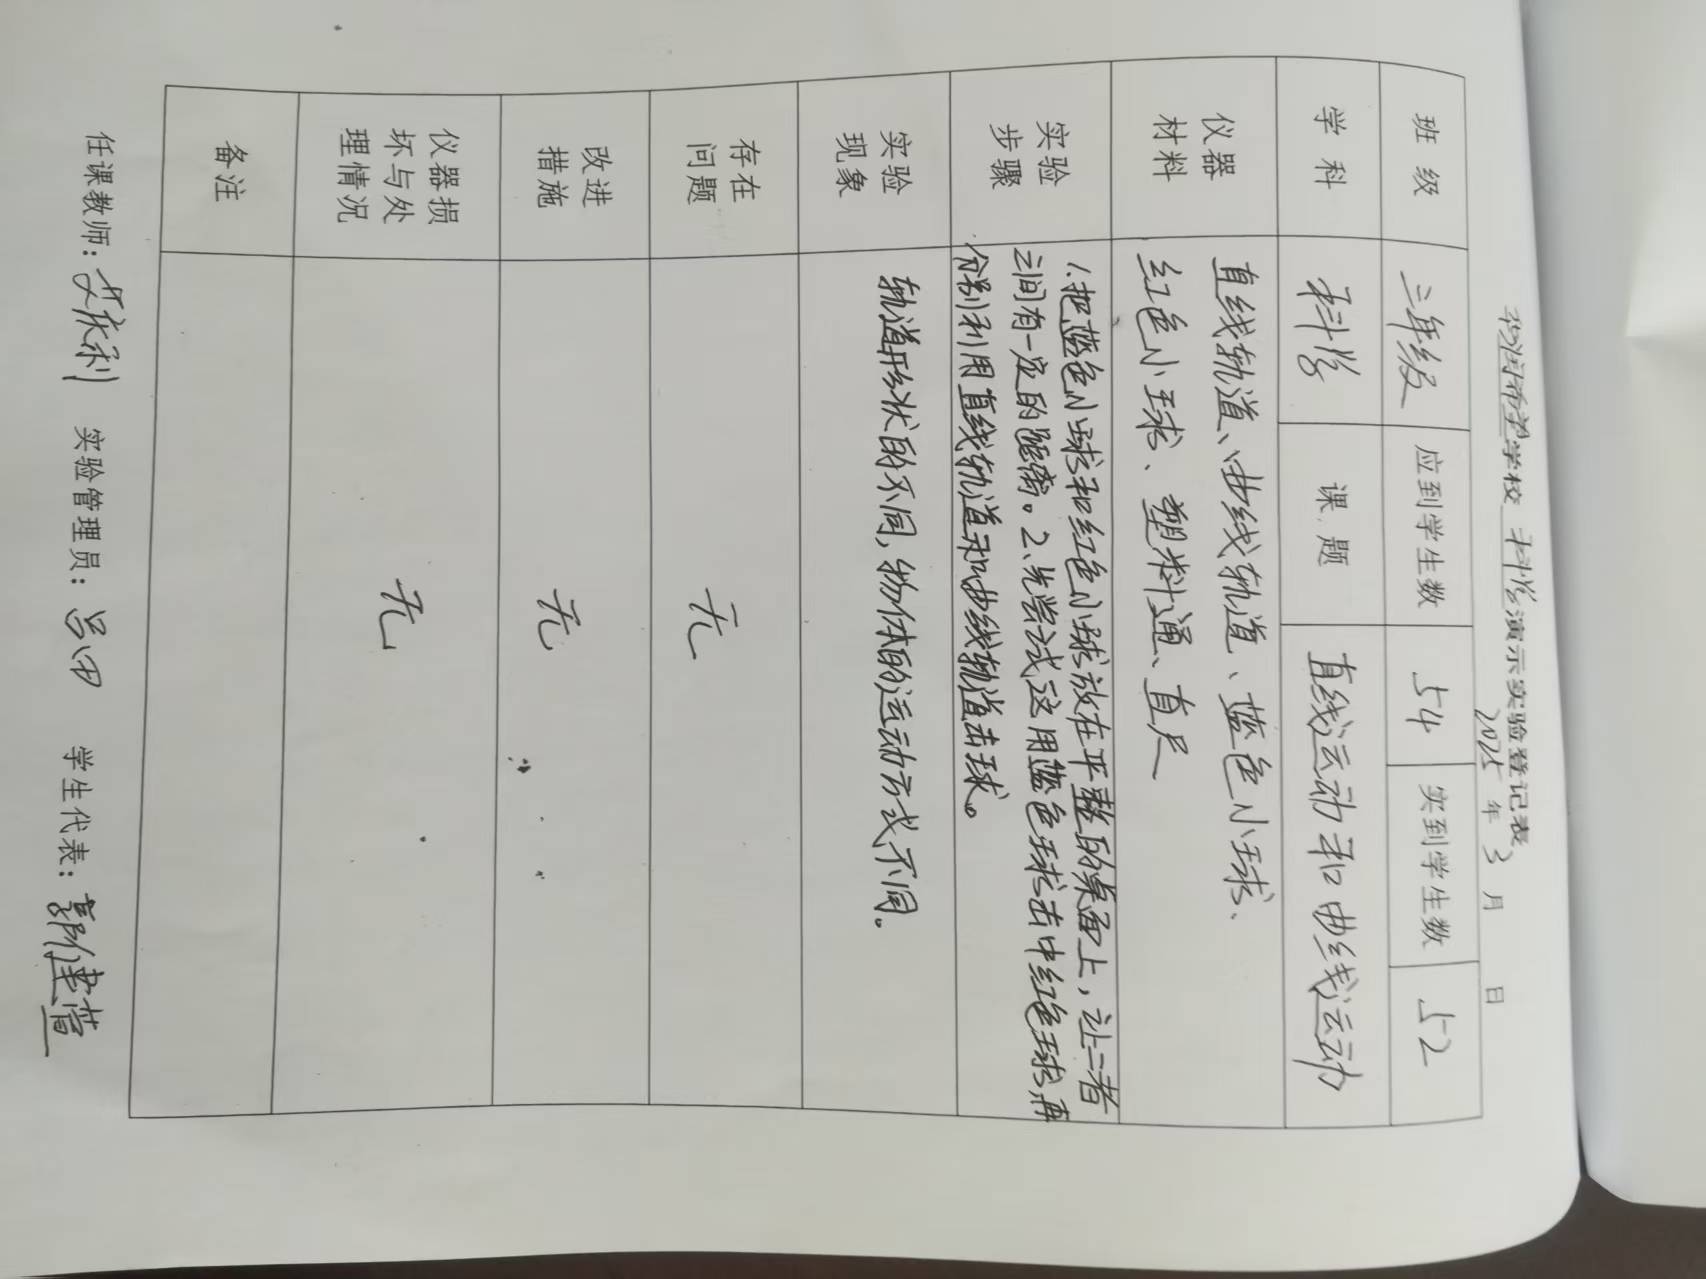 希望学校 科学演示实验登记表
2025年3月 日
班级 三年级 应到学生数 54 实到学生数 52
学科 科学 课题 直线运动和曲线运动
仪器材料 直线轨道、曲线轨道、蓝色小球、
红色小球、塑料通、直尺
实验步骤 1.把蓝色小球和红色小球放在平整的桌面上，让二者
之间有一定的距离。2、先尝试这用蓝色球击中红色球，再
分别利用直线轨道和曲线轨道击球。
实验现象 轨道形状的不同，物体的运动方式不同。
存在问题 无
改进措施 无
仪器损坏与处理情况 无
备注
任课教师： 实验管理员：吕田 学生代表：郭健萱